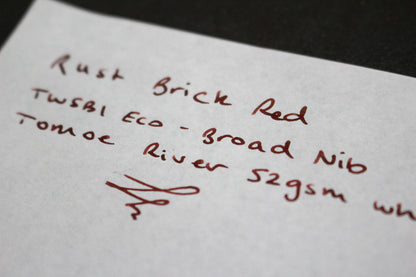 Rust Brick Red
TWSBI Eco - Broad Nib
Tomoe River 52gsm wh